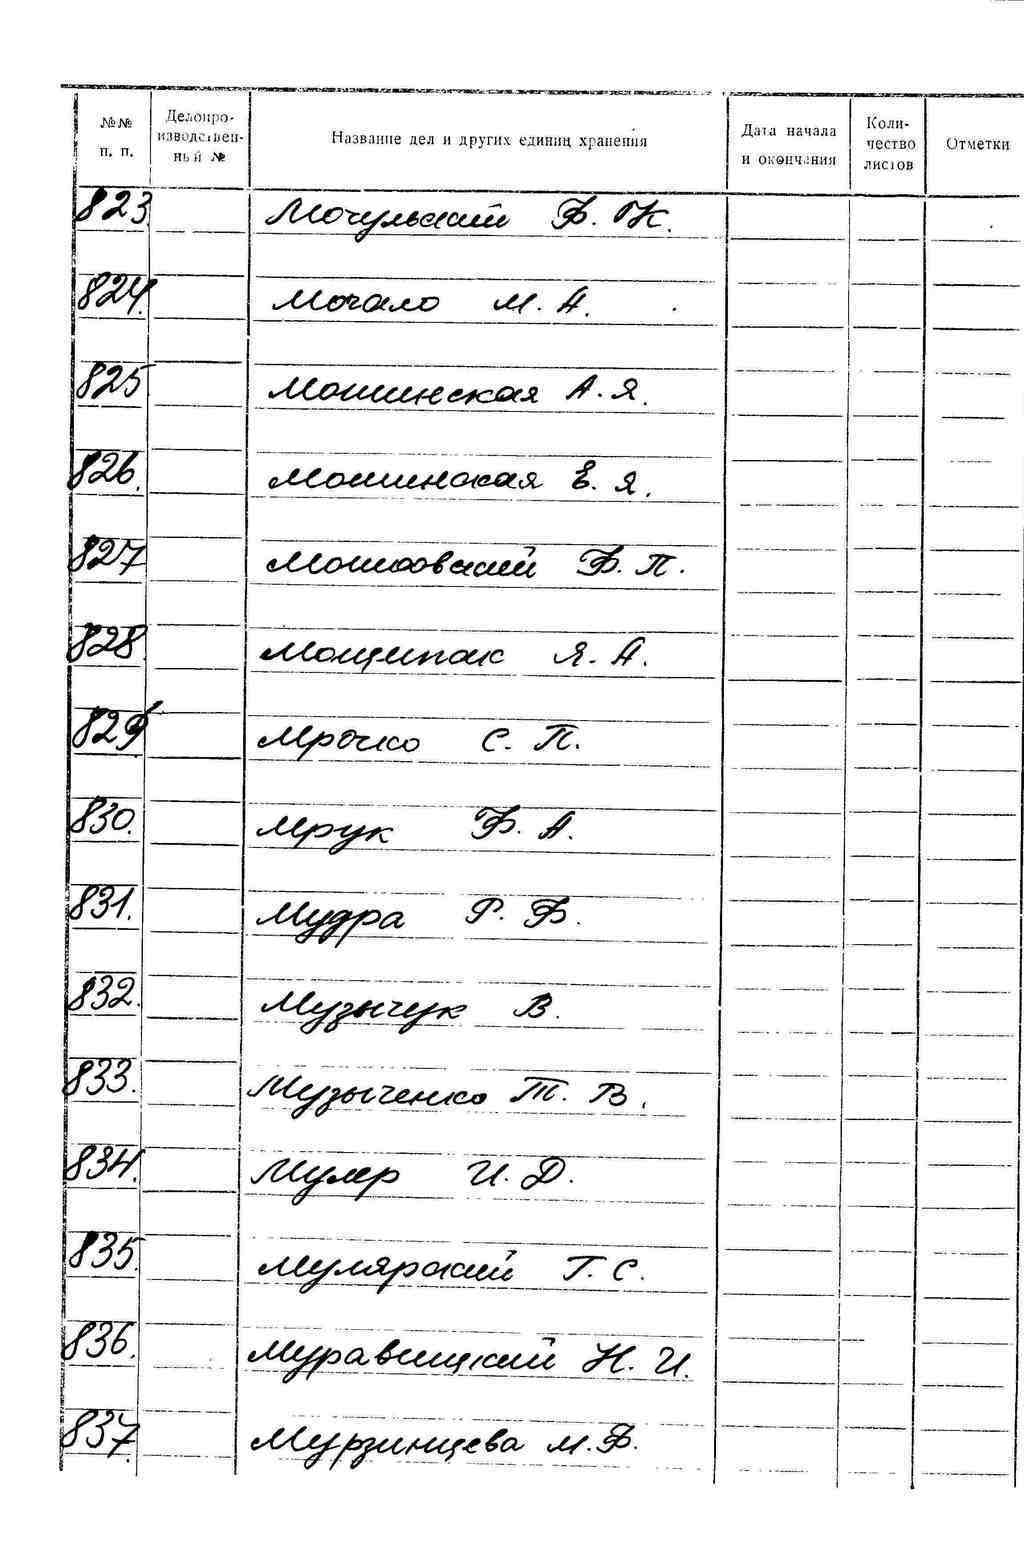 №№ п. п.
Делопро-
изводствен-
ный №
Название дел и других единиц хранения
Дата начала
и окончания
Коли-
чество
листов
Отметки
823. Мочульский Ф. К.
824. Мочало М. А.
825 Мошинская А. Я.
826. Мошинская Е. Я.
827 Мошковский Ф. П.
828. Мощипак Я. А.
829 Мрочко С. П.
830. Мрук Ф. А.
831. Мудра Р. Ф.
832. Музычук В.
833. Музыченко Т. В.
834. Мулер И. Д.
835. Мулярский Г. С.
836. Муравицкий Н. И.
837. Мурзинцева М. Ф.